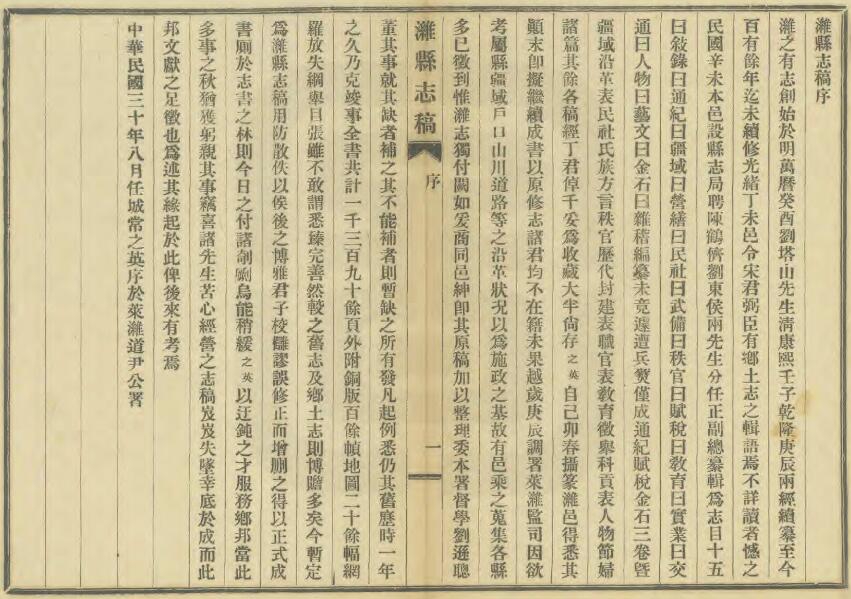 濰縣志稿序
濰之有志創始於明萬曆癸酉劉塔山先生清康熙壬子乾隆庚辰兩經續纂至今
百有餘年迄未續修光緒丁未邑令宋君弼臣有鄉土志之輯語焉不詳讀者憾之
民國辛未本邑設縣志局聘陳鶴儕劉東侯兩先生分任正副總纂輯為志目十五
曰敘錄曰通紀曰疆域曰營繕曰民社曰武備曰秩官曰賦稅曰教育曰實業曰交
通曰人物曰藝文曰金石曰雜稽編纂未竟遽遭兵燹僅成通紀賦稅金石三卷暨
疆域沿革表民社氏族方言秩官歷代封建表職官表教育徵舉科貢表人物節婦
諸篇其餘各稿經丁君倬千妥為收藏大半尚存之英自己卯春攝篆濰邑得悉其
顛末卽擬繼續成書以原修志諸君均不在籍未果越歲庚辰調署萊濰監司因欲
考屬縣疆域戶口山川道路等之沿革狀況以為施政之基故有邑乘之蒐集各縣
多已徵到惟濰志獨付闕如爰商同邑紳卽其原稿加以整理委本署督學劉遜聰
濰縣志稿
序
一
董其事就其缺者補之其不能補者則暫缺之所有發凡起例悉仍其舊歷時一年
之久乃克竣事全書共計一千三百九十餘頁外附銅版百餘幀地圖二十餘幅網
羅放失綱舉目張雖不敢謂悉臻完善然較之舊志及鄉土志則博贍多矣今暫定
為濰縣志稿用防散佚以俟後之博雅君子校讎謬誤修正而增刪之得以正式成
書廁於志書之林則今日之付諸剞劂烏能稍緩之英以迂鈍之才服務鄉邦當此
多事之秋猶獲躬親其事竊喜諸先生苦心經營之志稿岌岌失墜幸底於成而此
邦文獻之足徵也為述其緣起於此俾後來有考焉
中華民國三十年八月任城常之英序於萊濰道尹公署